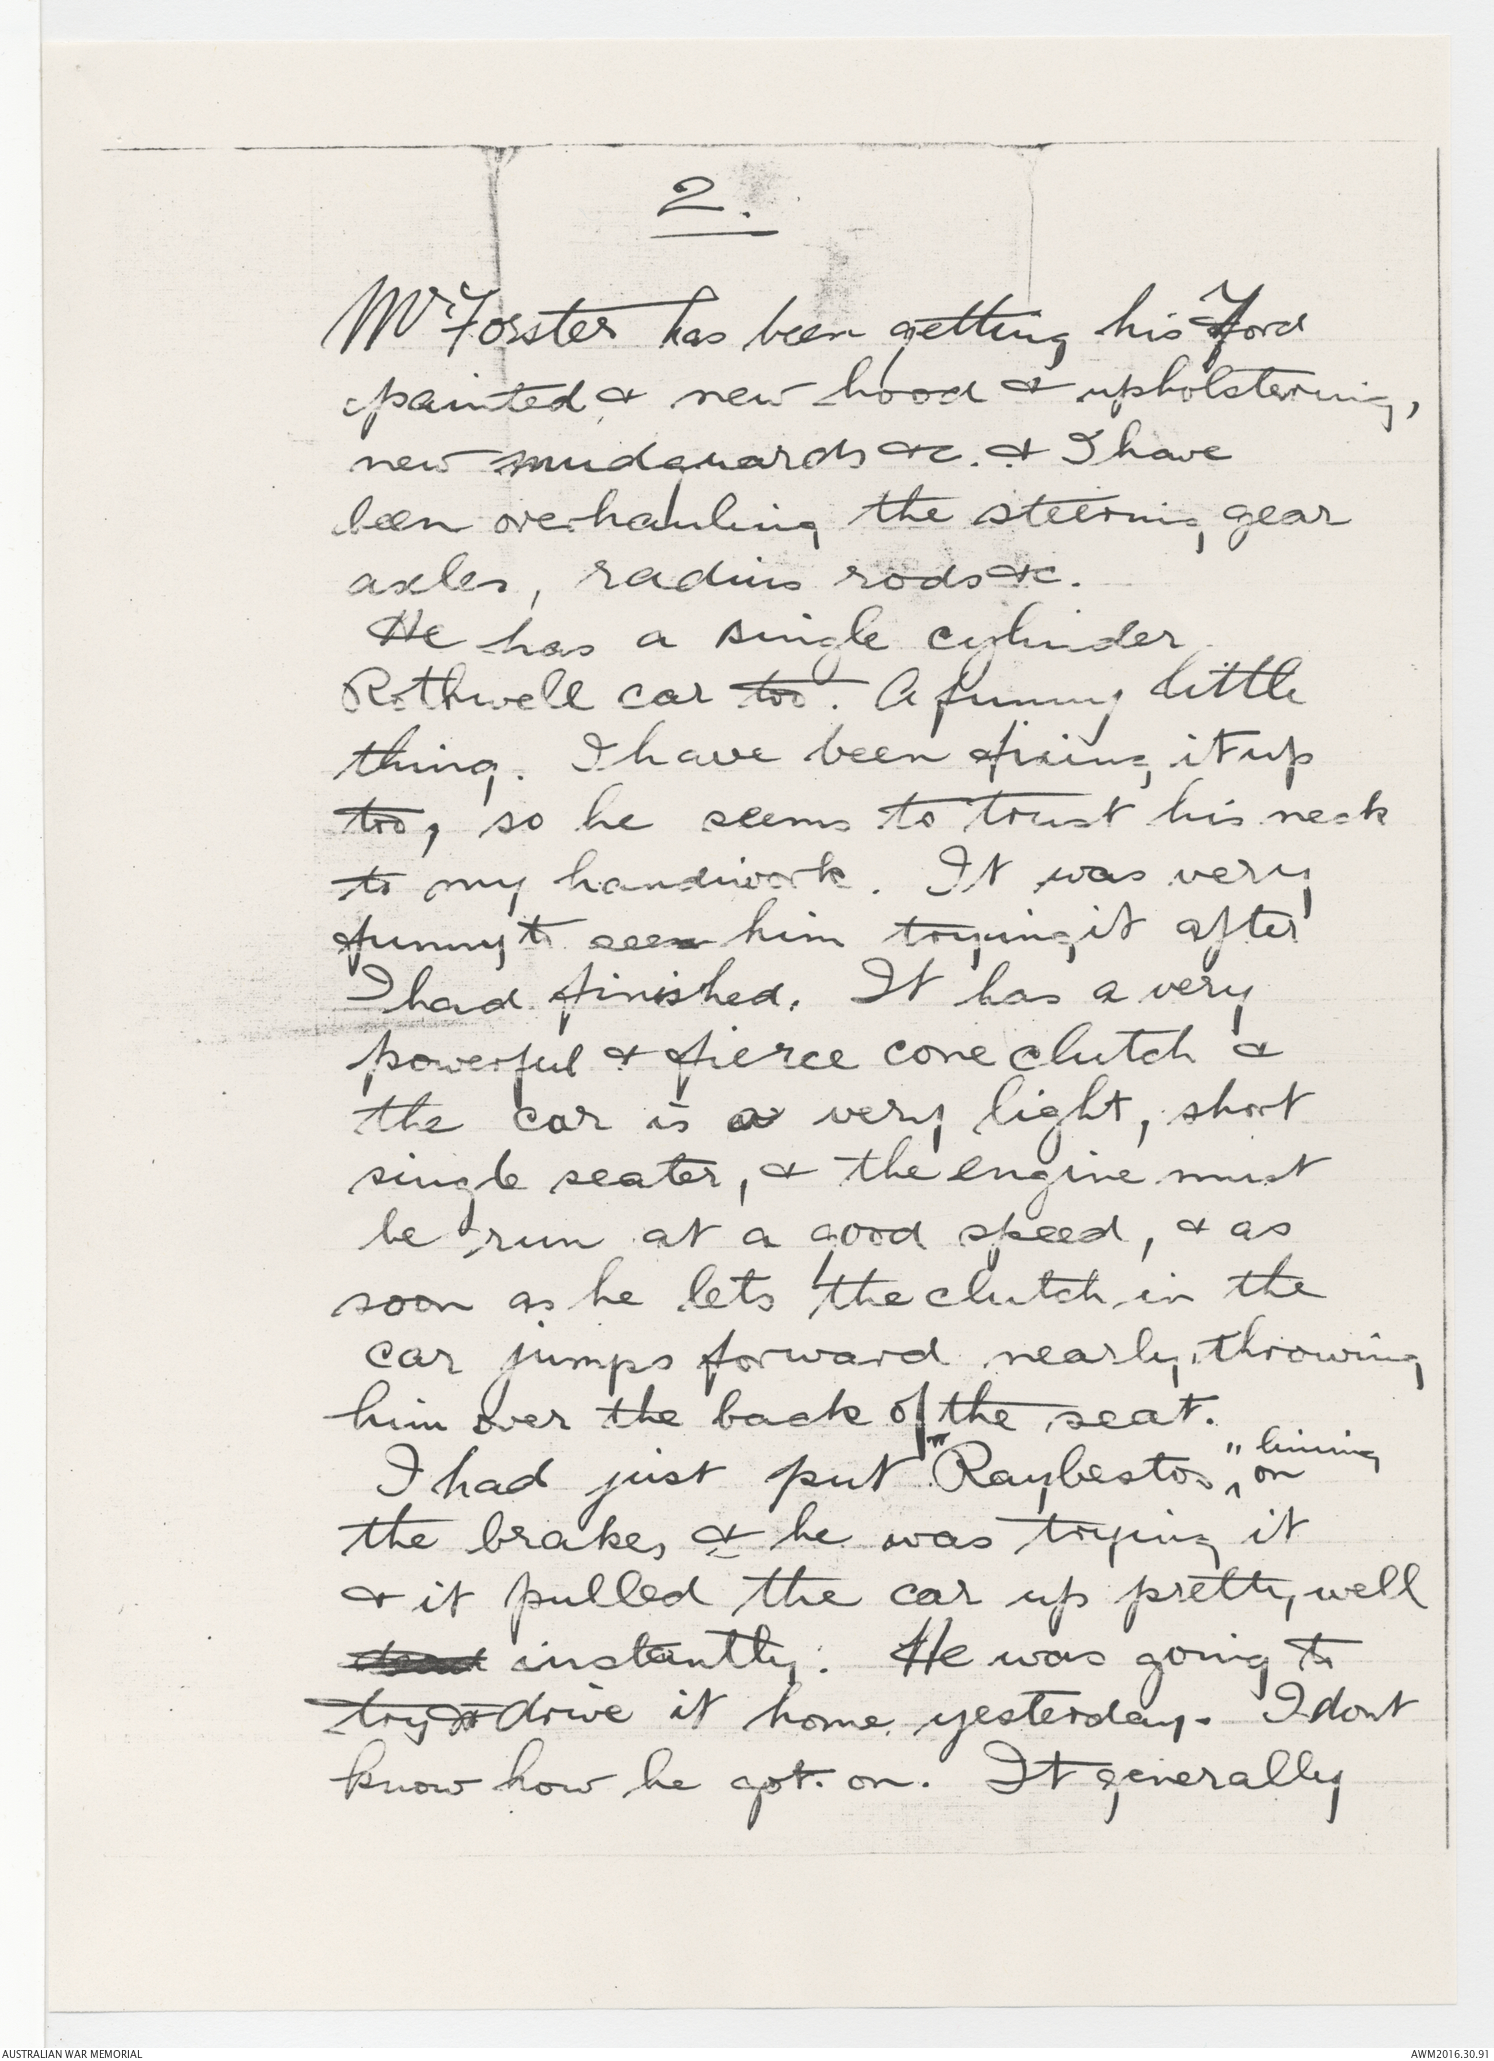 2.
Mr Forster has been getting his Ford
painted & new hood & upholstering,
new mudguards &c. & I have
been overhauling the steering gear
axles, radius rods &c.
He has a single cylinder
Rothwell car too. A funny little
thing. I have been fixing it up
too, so he seems to trust his neck
to my handiwork. It was very
funny to see him trying it after
I had finished. It has a very
powerful & fierce cone clutch &
the car is a very light, short
single seater, & the engine must
be run at a good speed, & as
soon as he lets the clutch in the
car jumps forward nearly throwing
him over the back of the seat.
I had just put "Raybestos" lining on
the brakes & he was trying it
& it pulled the car up pretty well
instantly. He was going to
try & drive it home yesterday. I dont
know how he got on. It generally
AUSTRALIAN WAR MEMORIAL
AWM2016.30.91